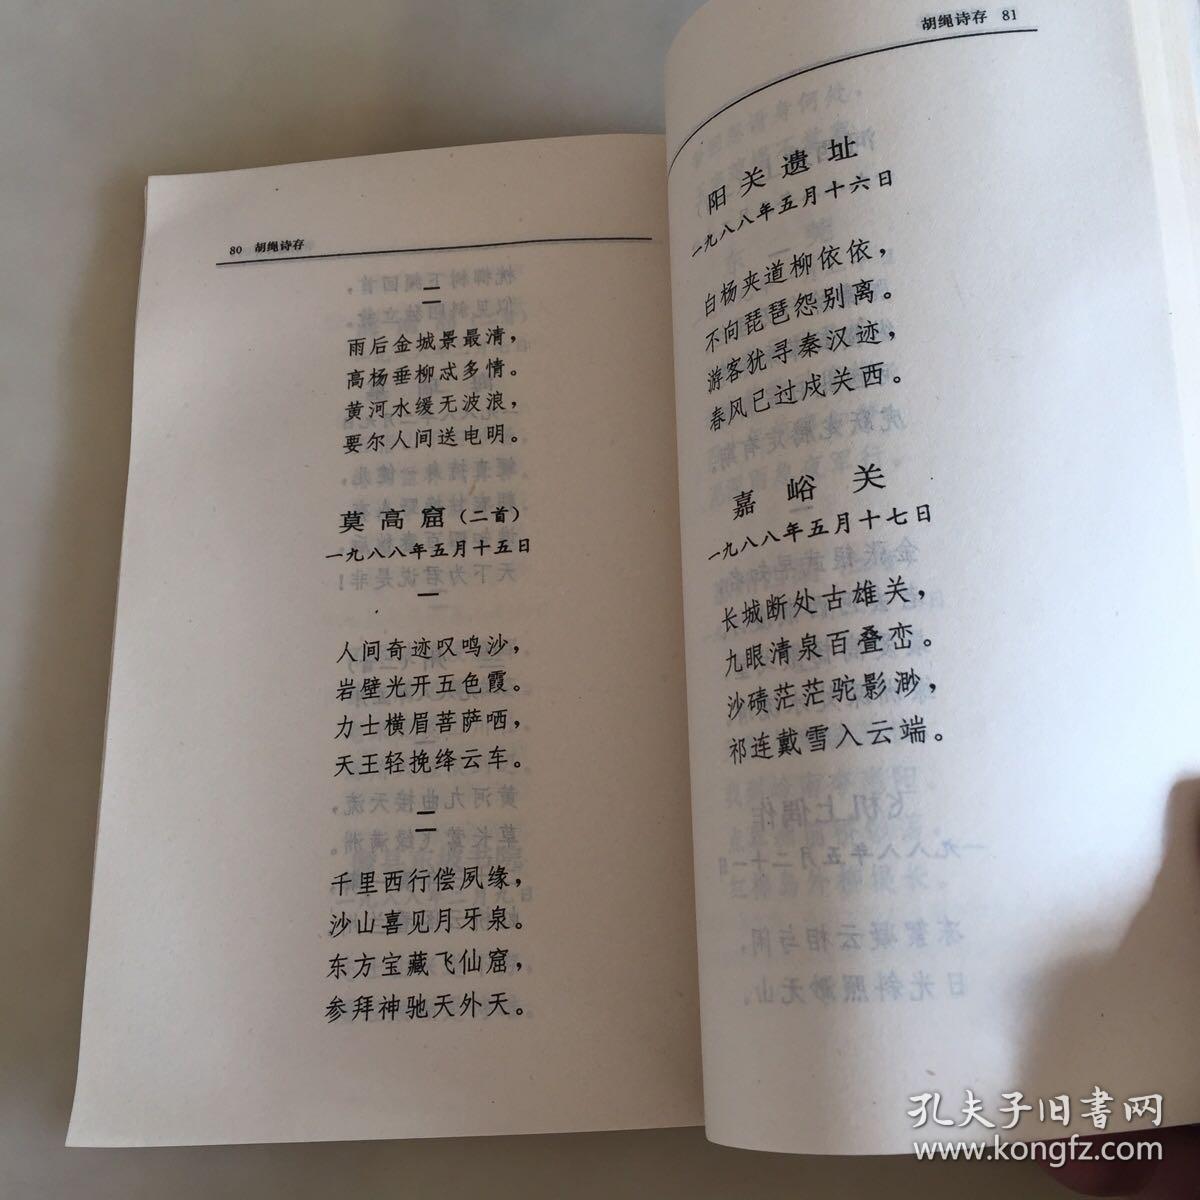 80 胡绳诗存
二
雨后金城景最清，
高杨垂柳忒多情。
黄河水缓无波浪，
要尔人间送电明。
莫高窟（二首）
一九八八年五月十五日
一
人间奇迹叹鸣沙，
岩壁光开五色霞。
力士横眉菩萨哂，
天王轻挽绛云车。
二
千里西行偿夙缘，
沙山喜见月牙泉。
东方宝藏飞仙窟，
参拜神驰天外天。
胡绳诗存 81
阳关遗址
一九八八年五月十六日
白杨夹道柳依依，
不向琵琶怨别离。
游客犹寻秦汉迹，
春风已过戍关西。
嘉峪关
一九八八年五月十七日
长城断处古雄关，
九眼清泉百叠峦。
沙碛茫茫驼影渺，
祁连戴雪入云端。
孔夫子旧书网
www.kongfz.com